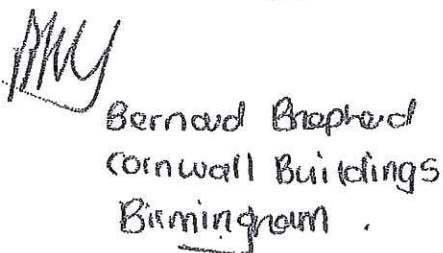 Bernard Shepherd
Cornwall Buildings
Birmingham.